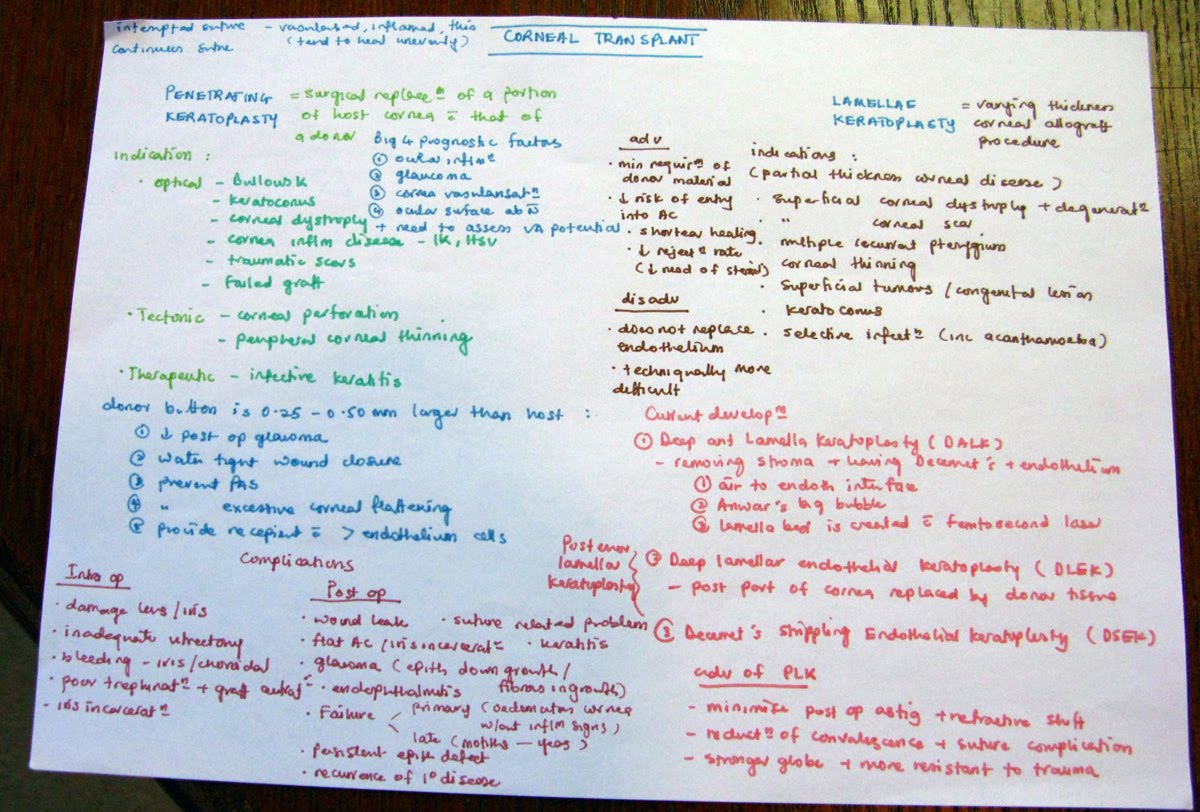 interrupted suture - vascularised, inflamed, thin
(tend to heal unevenly)
continuous suture
CORNEAL TRANSPLANT
PENETRATING KERATOPLASTY = surgical replacem of a portion
of host cornea c̄ that of
a donor
indication :
· optical - Bullous K
- keratoconus
- corneal dystrophy
- cornea inflm disease - IK, HSV
- traumatic scars
- failed graft
· Tectonic - corneal perforation
- peripheral corneal thinning
· Therapeutic - infective keratitis
Big 4 prognostic factors
① ocular inflmn
② glaucoma
③ cornea vascularisatn
④ ocular surface abn
+ need to assess VA potential
donor button is 0.25 - 0.50 mm larger than host :
① ↓ post op glaucoma
② water tight wound closure
③ prevent PAS
④ " excessive corneal flattening
⑤ provide recepient c̄ > endothelium cells
Complications
Intra op
· damage lens / iris
· inadequate vitrectomy
· bleeding - iris / choroidal
· poor trephinatn + graft
- iris incarceratn
Post op
· wound leak
· suture related problem
· flat AC / iris incarceratn
· keratitis
· glaucoma (epith downgrowth /
fibrous ingrowth)
· endophthalmitis
· Failure
primary (oedematous cornea
w/out inflm signs)
late (months - years)
· Persistent epith defect
· recurrence of 1° disease
LAMELLAE KERATOPLASTY = varying thickness
corneal allograft
procedure
adv
· min requirm of
donor material
· ↓ risk of entry
into AC
· shorter healing
· ↓ rejectn rate
(↓ need of steroid)
disadv
· does not replace
endothelium
· techniqually more
difficult
indications :
(partial thickness corneal disease)
· Superficial corneal dystrophy + degeneratn
· " corneal scar
· multiple recurrent pterygium
· corneal thinning
· Superficial tumours / congenital lesion
· keratoconus
· selective infectn (inc acanthamoeba)
Current developm
① Deep ant Lamella Keratoplasty (DALK)
- removing stroma + leaving Decemet's + endothelium
① air to endoth interface
② Anwar's big bubble
③ lamella bed is created c̄ femtosecond laser
Posterior
lamellar
keratoplasty
② Deep lamellar endothelial keratoplasty (DLEK)
- post part of cornea replaced by donor tissue
③ Decemet's Stripping Endothelial keratoplasty (DSEK)
adv of PLK
- minimise post op astig + refractive shift
- reductn of convalescence + suture complication
- stronger globe + more resistant to trauma